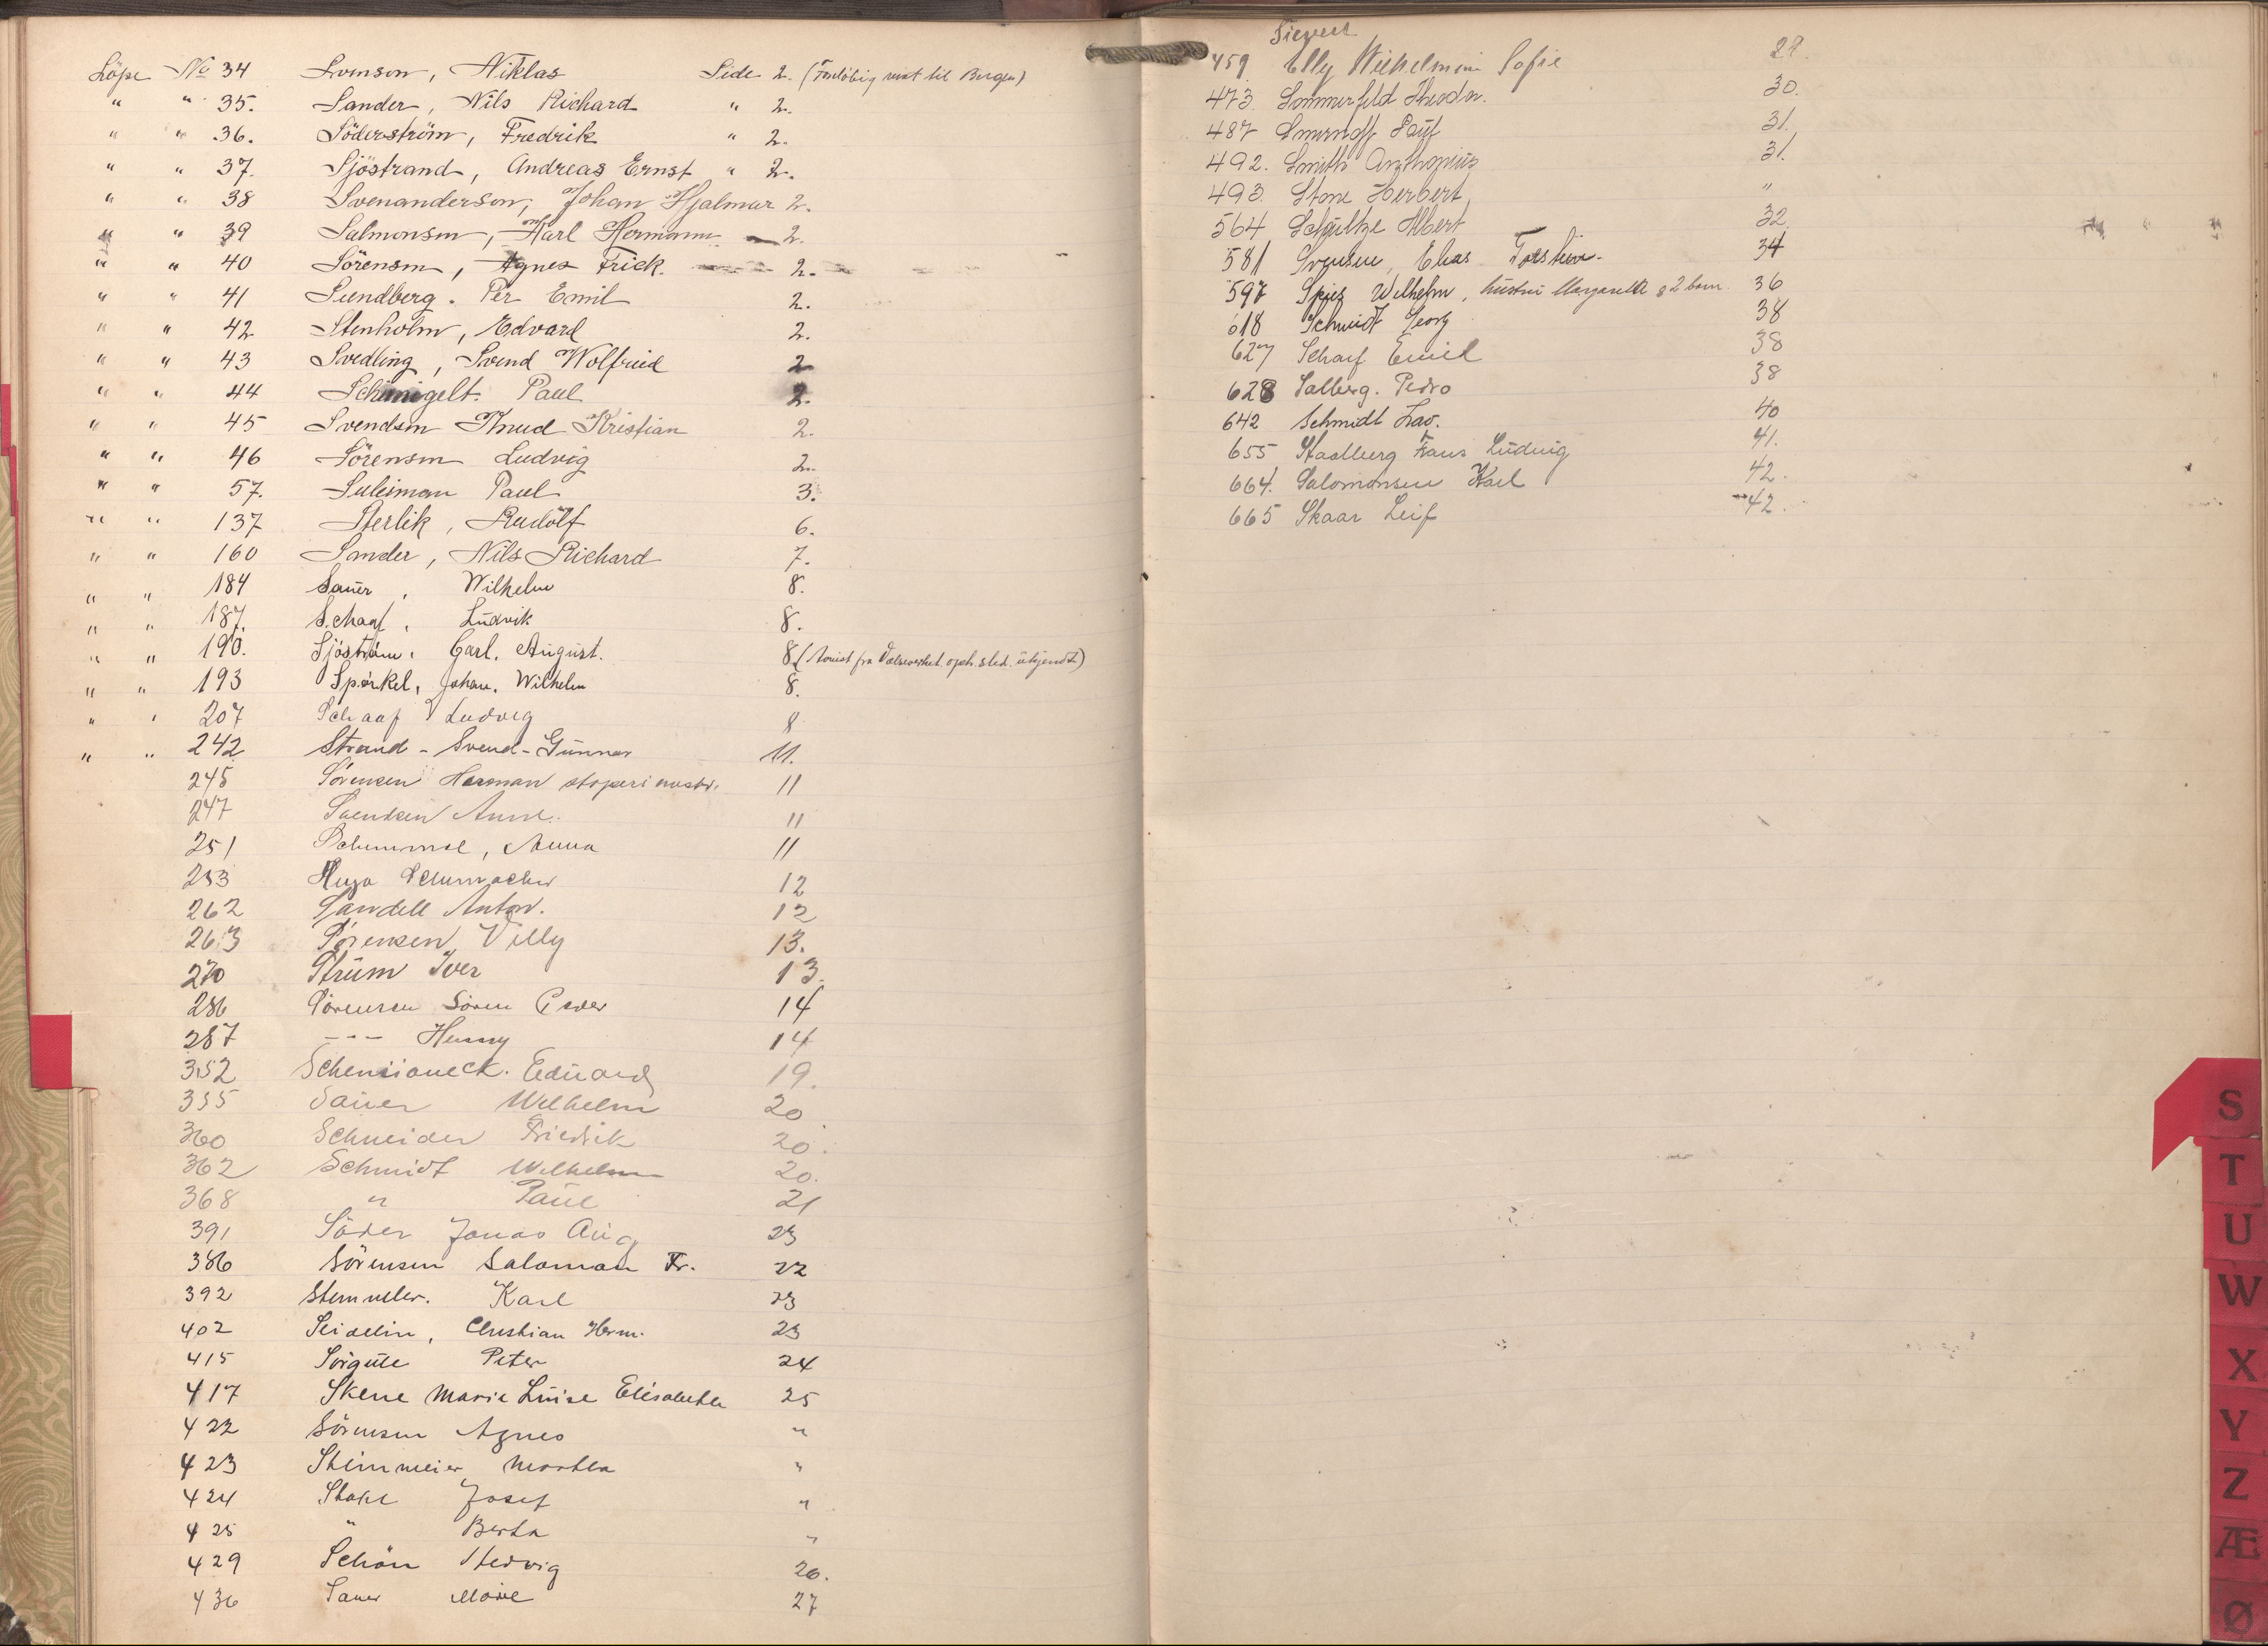 Löpe No 34 Svenson, Niklas Side 2. (Foreløbig reist til Bergen)
" " 35. Sander, Nils Richard " 2.
" " 36. Söderström, Fredrik " 2.
" " 37. Sjöstrand, Andreas Ernst " 2.
" " 38 Svenanderson, Johan Hjalmar 2.
" " 39 Salmonsen, Karl Hermann 2.
" " 40 Sörensen, Agnes Frick. 2.
" " 41 Sundberg. Per Emil 2.
" " 42. Stenholm, Edvard 2.
" " 43 Svedling, Svend Wolfried 2
" " 44 Paul 2.
" " 45 Svendsen Knud Kristian 2.
" " 46 Sörensen Ludvig 2.
" " 57. Suleiman Paul 3.
" " 137 Sterlik, Rudolf 6.
" " 160 Sander, Nils Richard 7.
" " 184 Sauer, Wilhelm 8.
" " 187. Schaaf, Ludvik 8.
" " 190. Sjöström, Carl. August. 8. (
" " 193 Spörkel, Johan. Wilhelm 8.
" " 207 Schaaf Ludvig 8
" " 242 Strand - Svend - Gunnar 11.
245 Sörensen Herman 11
247 Svendsen 11
251 Anna 11
253 Hugo Schumacher 12
262 Sandell Anton. 12
263 Sörensen, Villy 13.
270 Strüm Iver 13.
286 Sörensen Sören Peder 14
287 - - - Henny 14
352 Eduard 19.
355 Sauer Wilhelm 20
360 Schneider Friedrik 20.
362 Schmidt Wilhelm 20.
368 " Paul 21
391 Söder Jonas Aug 23
386 Sörensen Saloman Fr. 22
392 Stemmler. Karl 23
402 Seidelin, Christian Herm. 23
415 Peter 24
417 Skene Marie Luise Elisabeth 25
422 Sörensen Agnes "
423 Steinmeier Martha "
424 Josef "
425 " Berta "
429 Schön Hedvig 26.
436 Sauer Marie 27
Sievert
459 Elly Wilhelmine Sofie 29.
473. Sommerfeld Theodor. 30.
487 Smirnoff Paul 31.
492. Smith 31.
493. Stone Herbert "
564 Schultze Albert 32.
581 Svensen, Elias 34
597 Spies Wilhelm, hustru Margareta & 2 barn. 36
618 Schmidt Georg 38
627 Scharf Emil 38
628 Salberg. Pedro 38
642 Schmidt 40
655 Stadlberg Frans Ludwig 41.
664. Salomonsen Karl 42.
665 Skaar Leif 42.
S
T
U
W
X
Y
Z
Æ
Ø